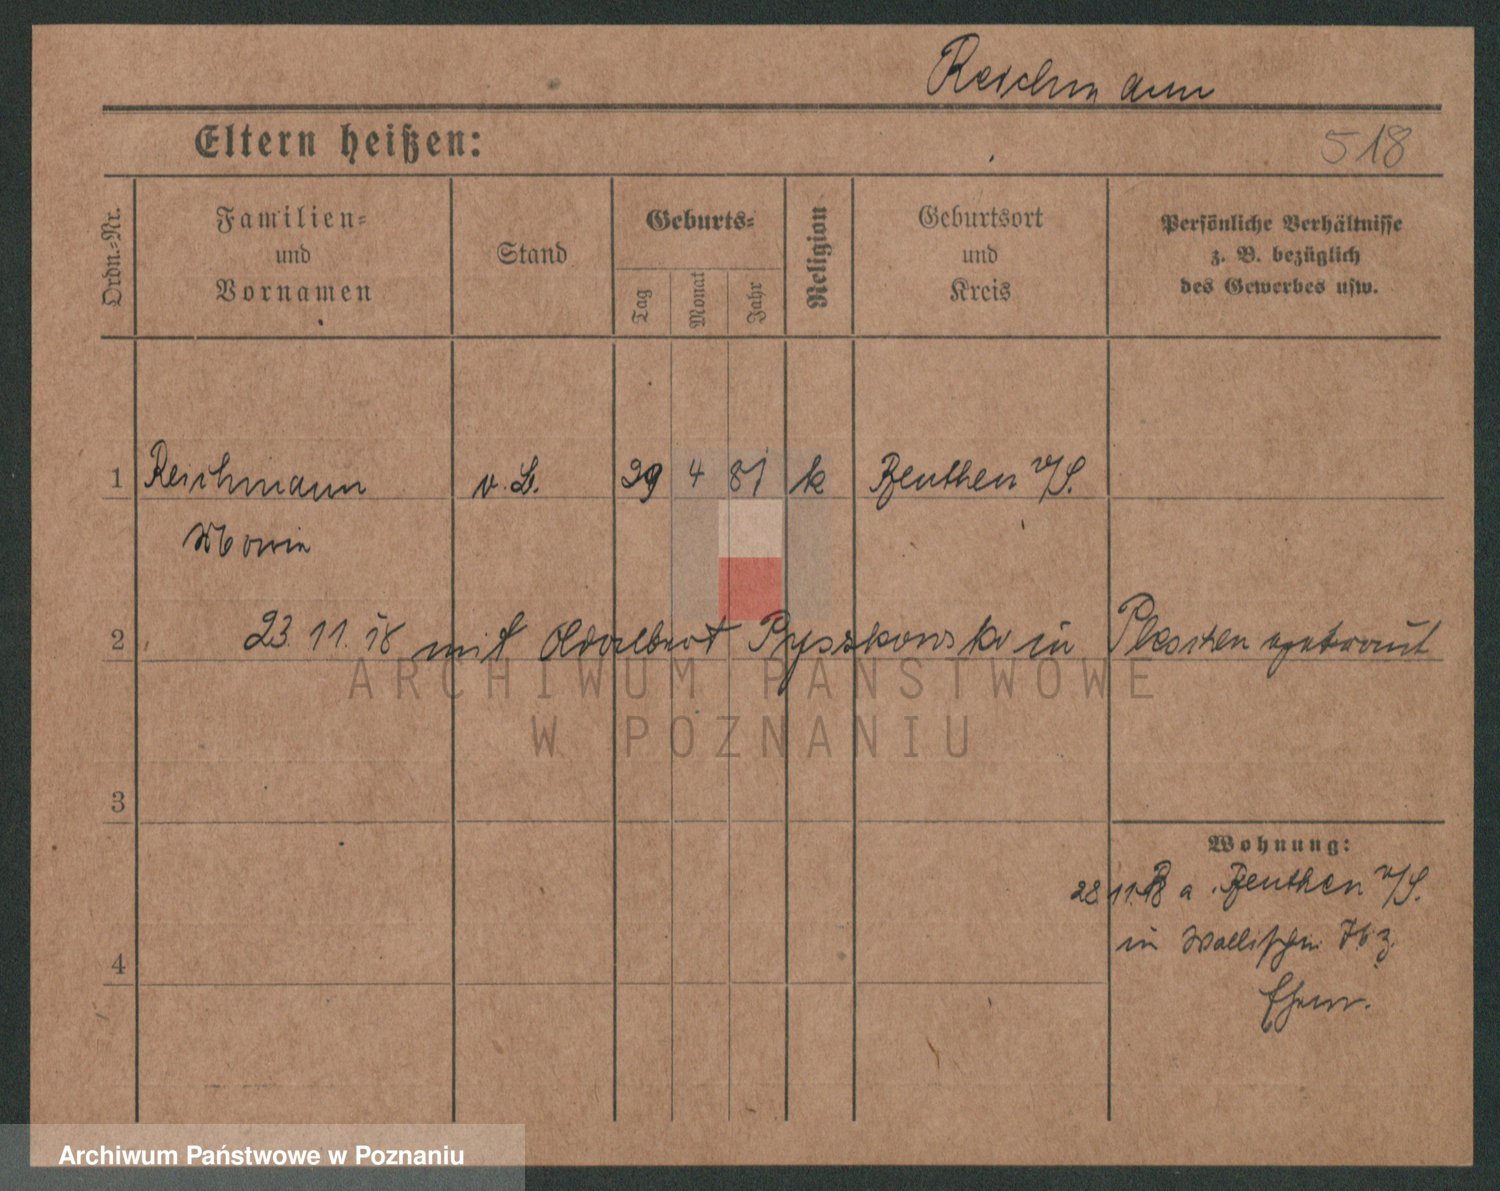 Reichmann
Eltern heißen:
518
Ordn.=Nr.
Familien=
und
Vornamen
Stand
Geburts=
Tag
Monat
Jahr
Religion
Geburtsort
und
Kreis
Persönliche Verhältnisse
z. B. bezüglich
des Gewerbes usw.
1 Reichmann v. L. 29 4 81 k Beuthen O/S.
Maria
2 23. 11. 18 mit Adalbert Pyszkowski in Pleschen getraut
ARCHIWUM PAŃSTWOWE
W POZNANIU
3
Wohnung:
28.11.18 a. Beuthen O/S.
in Wallischei 76 z.
4
Ehem.
Archiwum Państwowe w Poznaniu